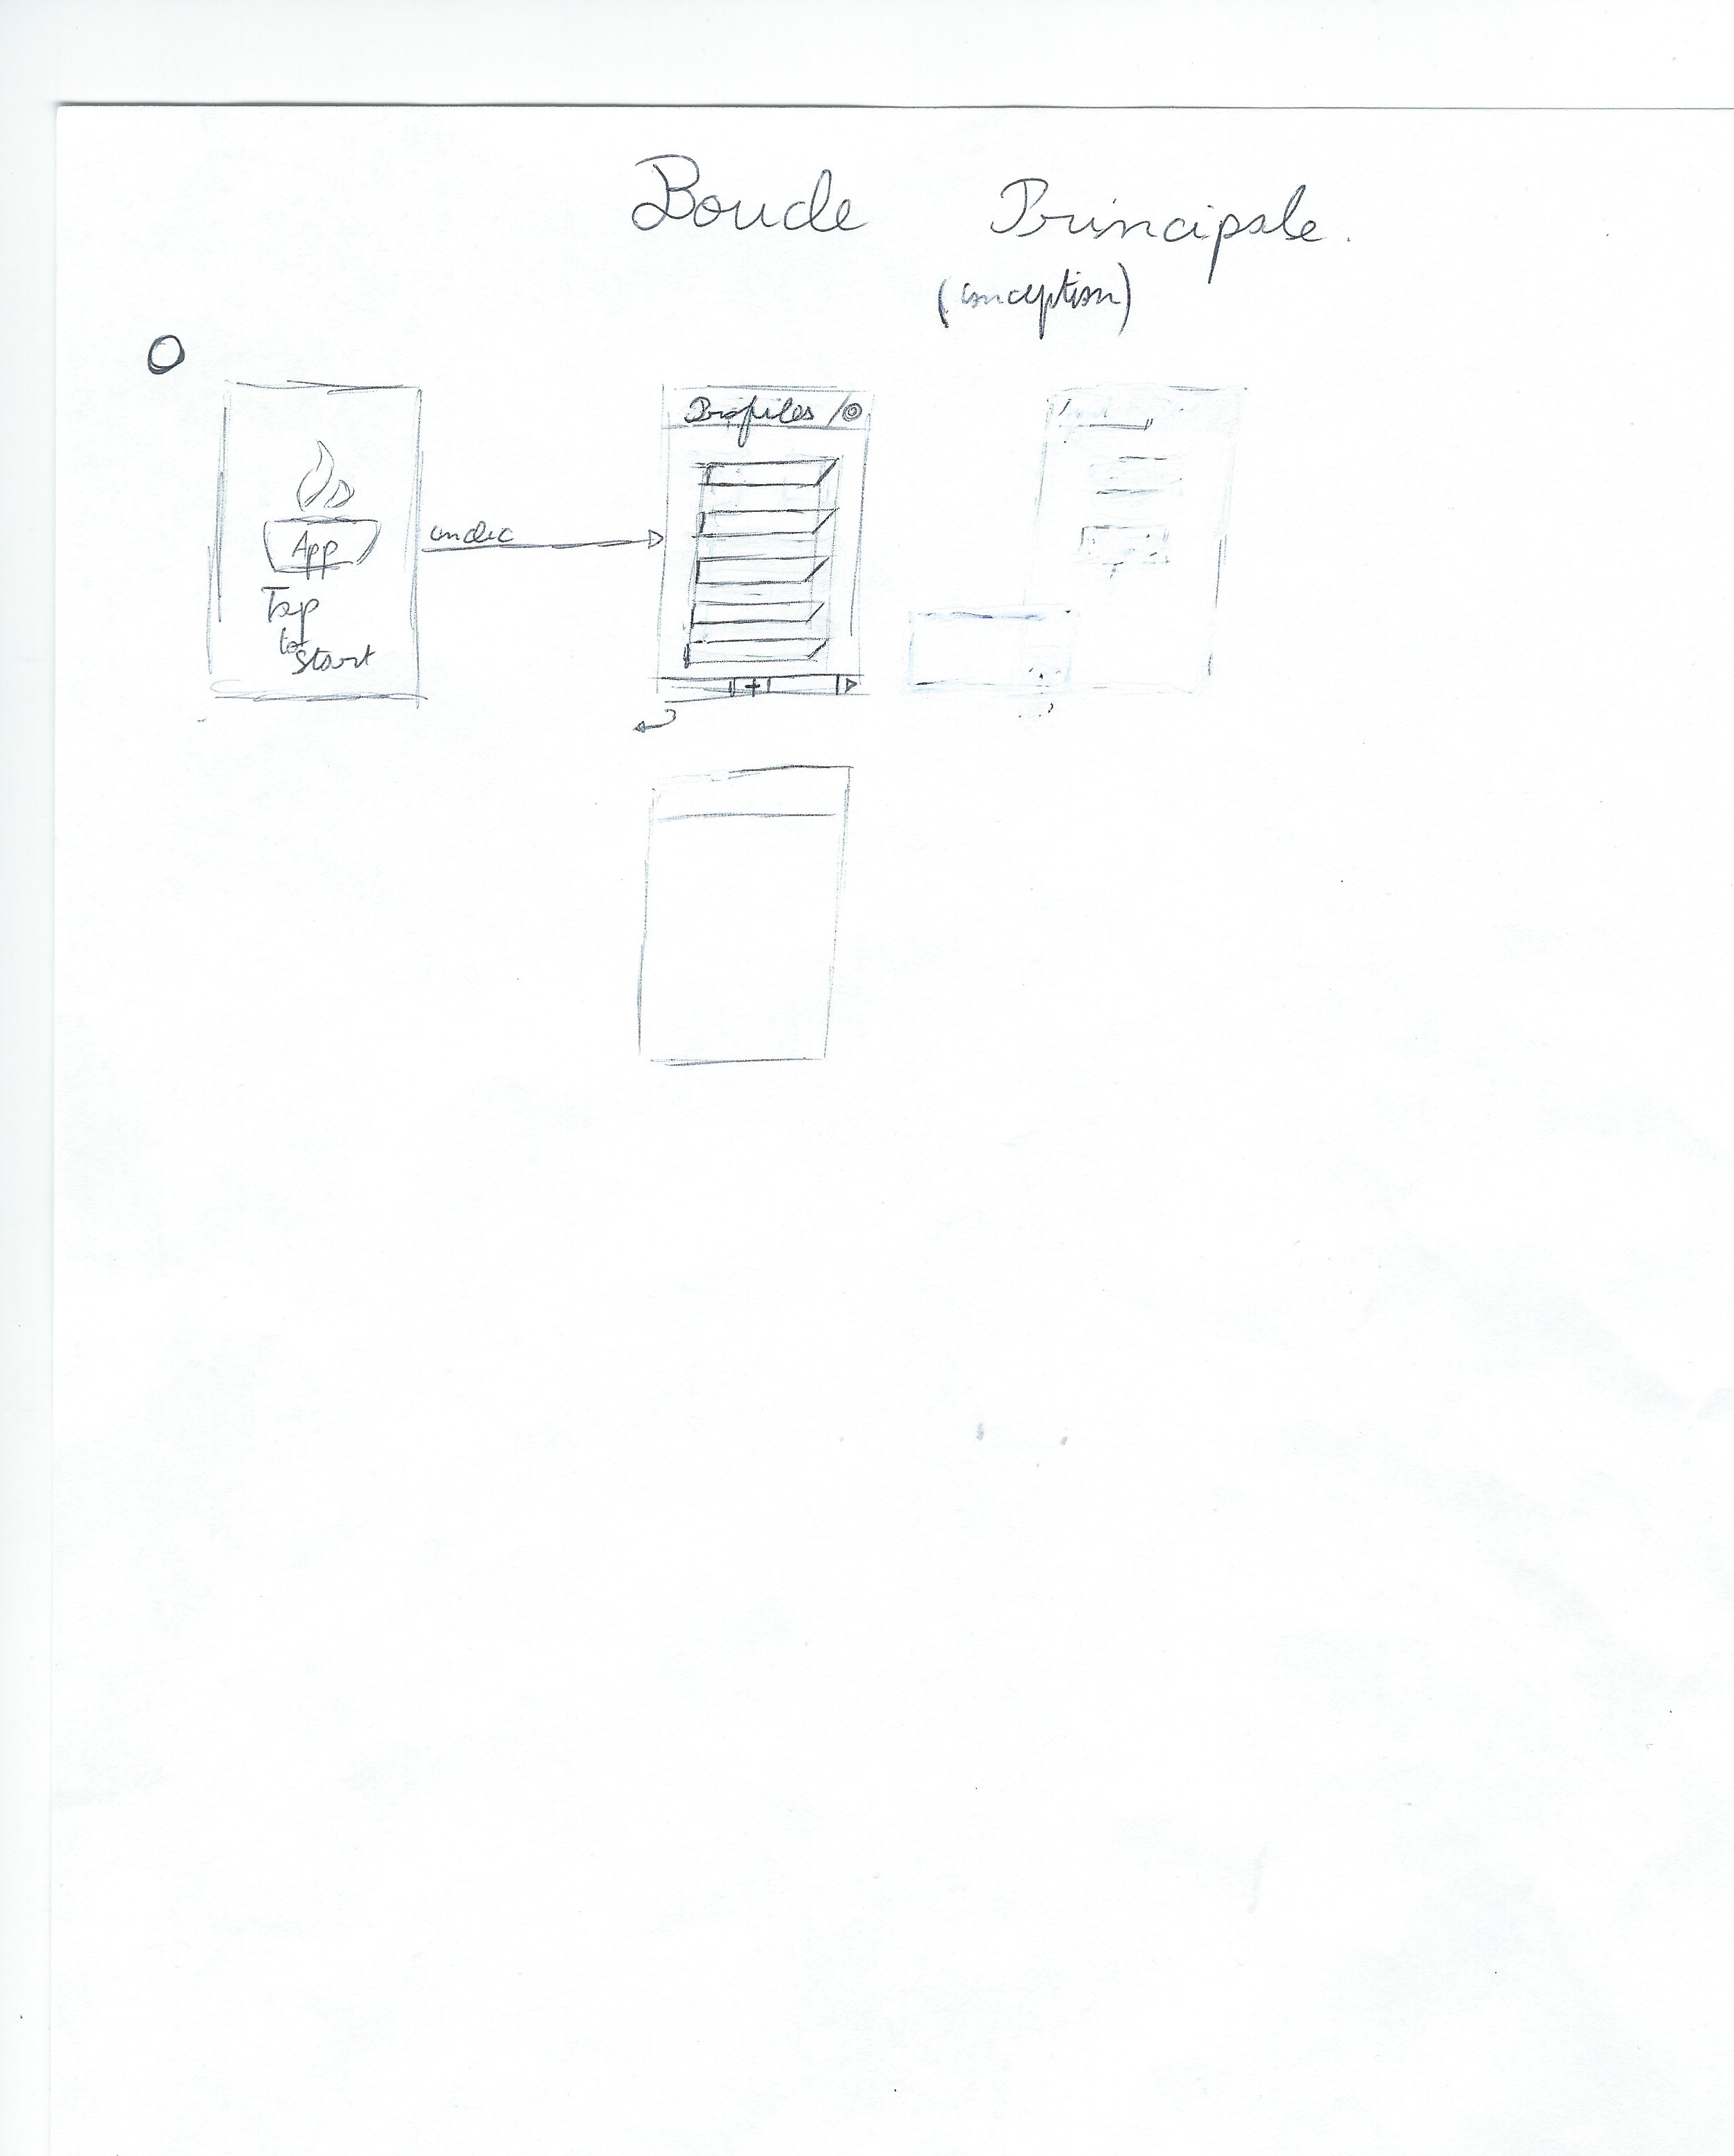 Boucle Principale.
(inception)
App
Tap
to
Start
onclic
Profiles